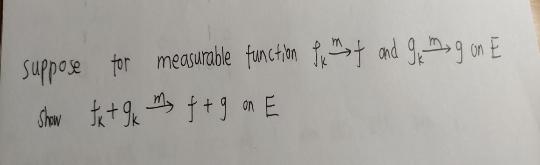 suppose for measurable function fₖ →ᵐ f and gₖ →ᵐ g on E
show fₖ+gₖ →ᵐ f+g on E